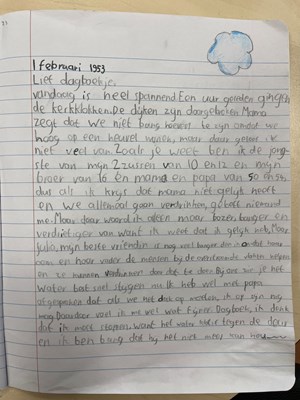 1 februari 1953
Lief dagboekje,
vandaag is heel spannend Een uur geleden gingen
de kerkklokken. De dijken zijn doorgebroken Mama
zegt dat we niet bang hoeven te zijn omdat we
hoog op een heuvel wonen, maar daar geloof ik
niet veel van. Zoals je weet ben ik de jong-
ste van mijn 2 zussen van 10 en 12 en mijn
broer van 16 en mama en papa van 50 en 54,
dus als ik krijs dat mama niet gelijk heeft
en we allemaal gaan verdrinken, gelooft niemand
me. Maar daar word ik alleen maar bozer, banger en
verdrietiger van want ik weet dat ik gelijk heb. Maar
mijn beste vriendin is nog veel banger dan
en haar vader de mensen bij de
en ze kunnen verdrinken door dat te doen. Bij ons zie je het
water best snel stijgen nu. Ik heb wel met papa
afgesproken dat als we het dak op moeten, ik op zijn rug
mag. Daardoor voel ik me wel wat fijner. Dagboek, ik denk
dat ik moet stoppen, want het water tegen de deur
en ik ben bang dat hij het niet meer kan